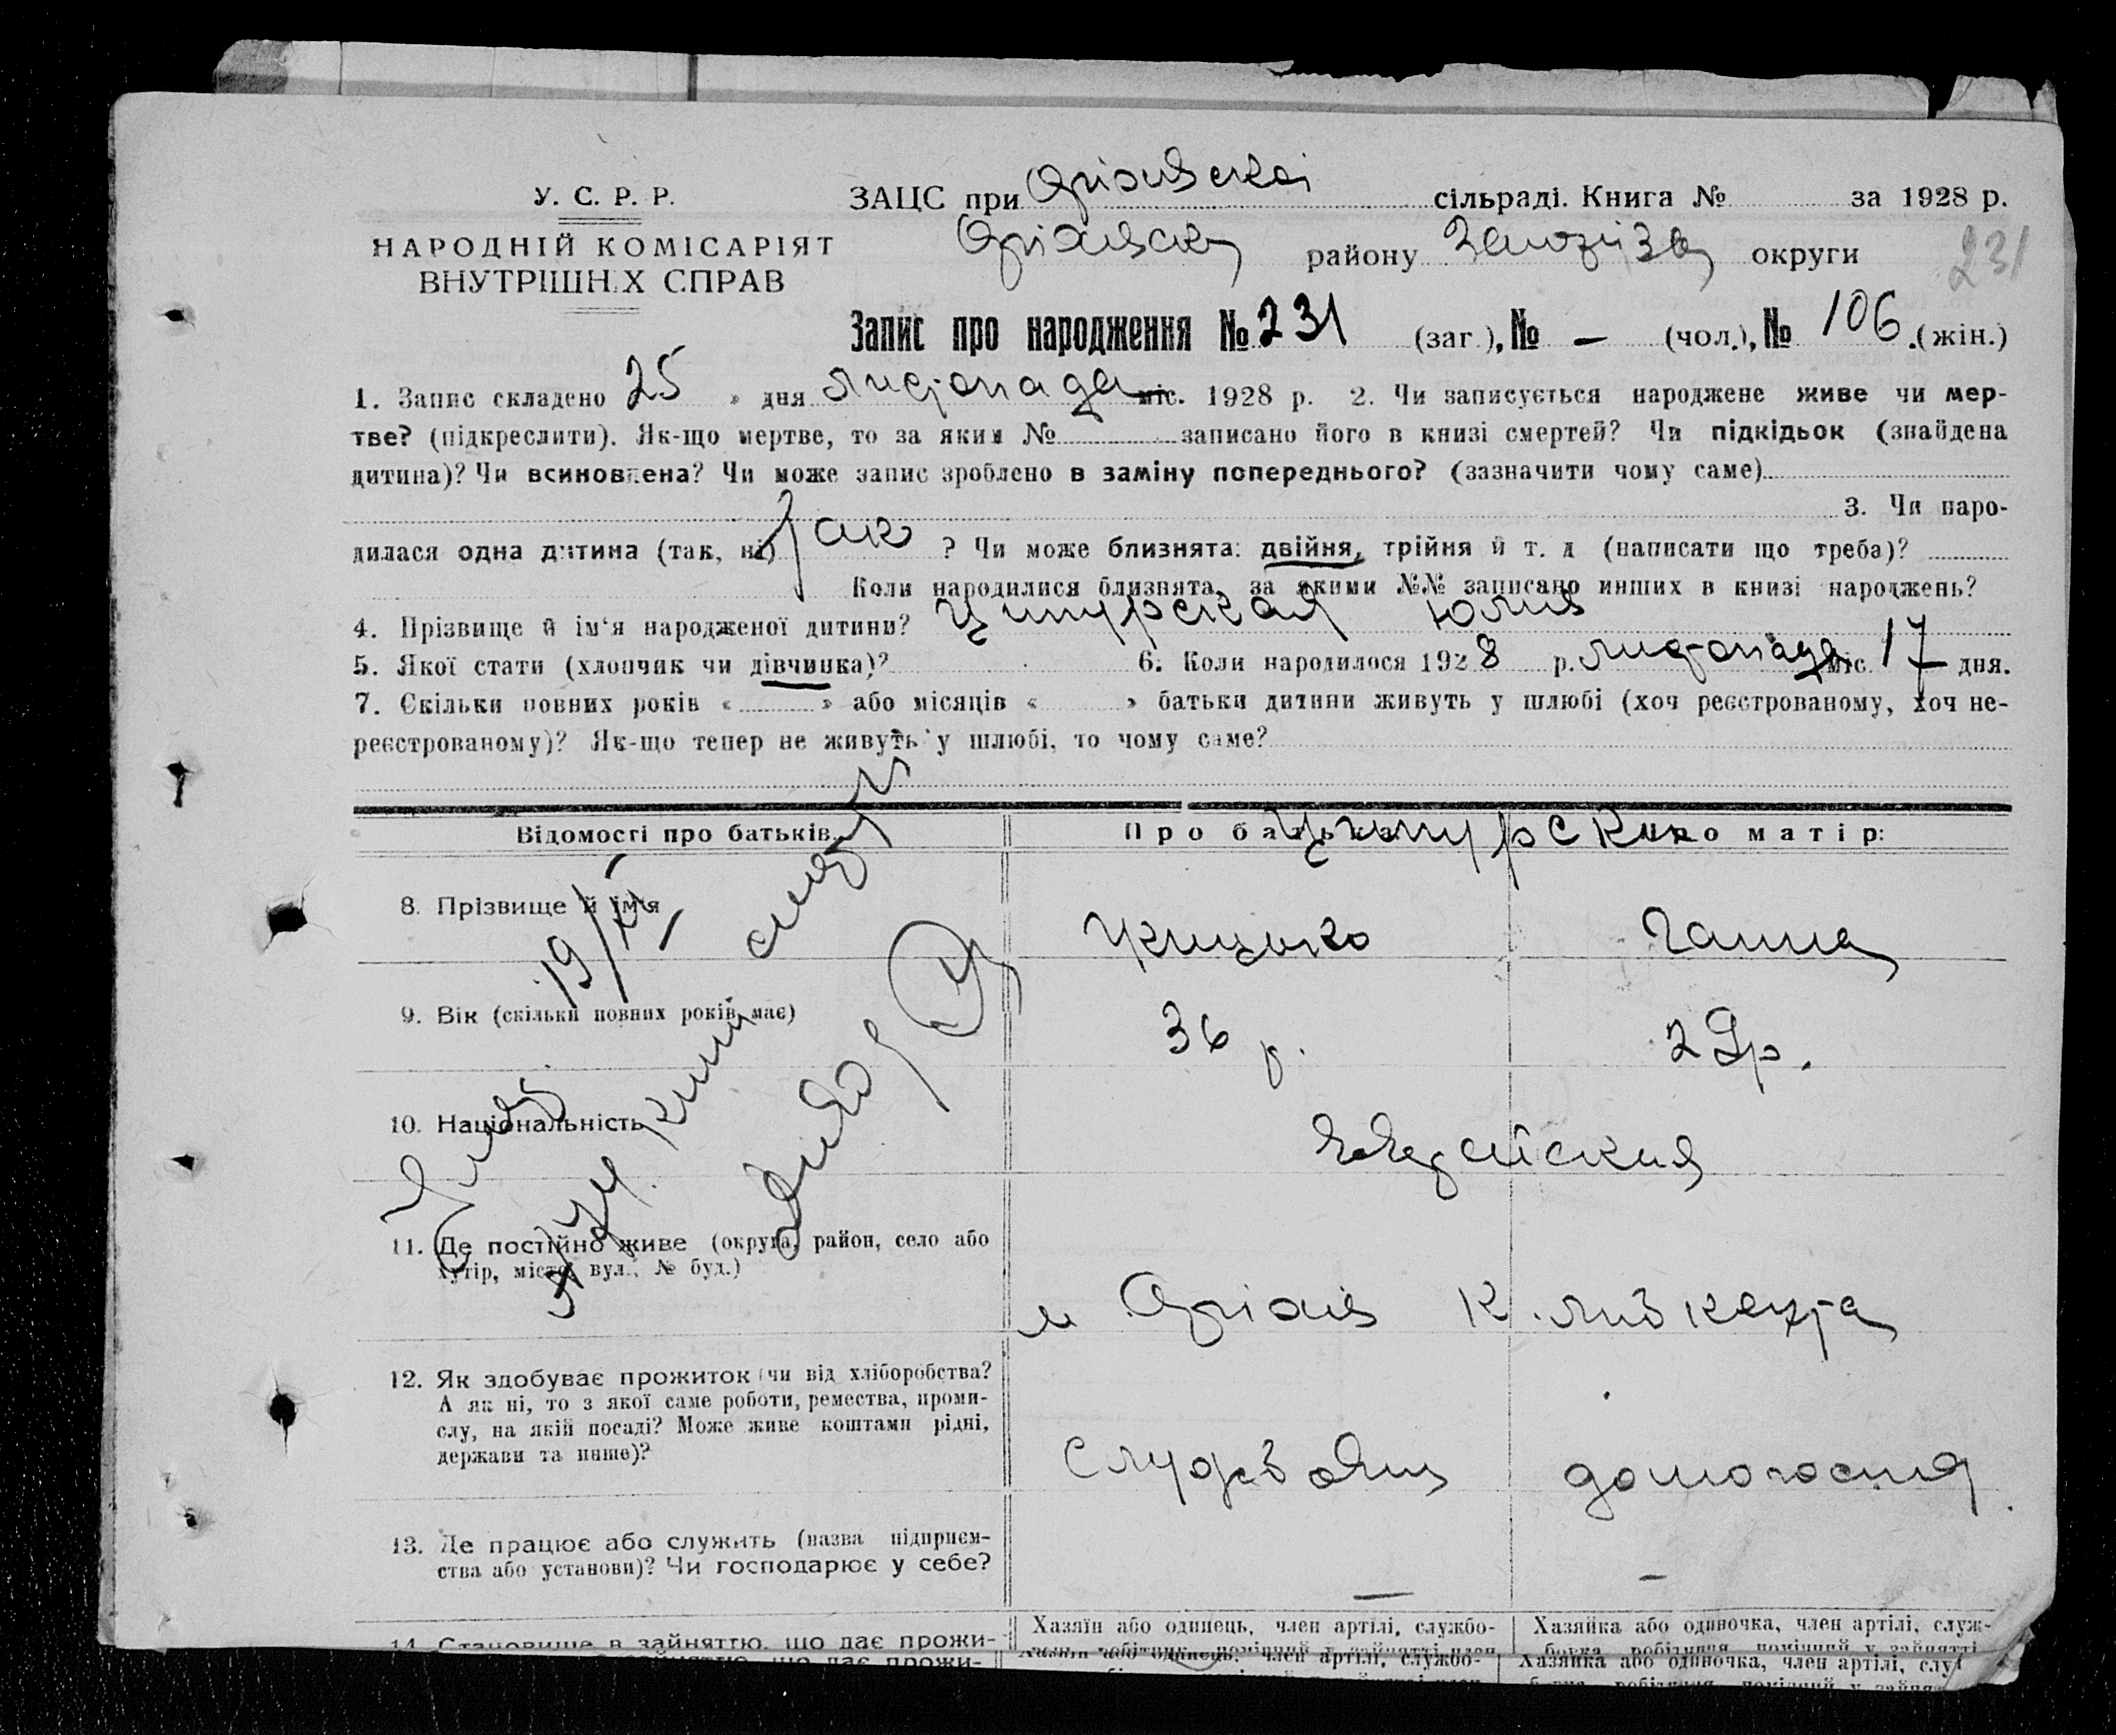 У. С. Р. Р.
НАРОДНІЙ КОМІСАРІЯТ
ВНУТРІШНІХ СПРАВ
ЗАЦС при Оріхівській сільраді. Книга № за 1928 р.
Оріхівськ району Запоріз округи
231
Запис про народження № 231 (заг.), № — (чол.), № 106 (жін.)
1. Запис складено 25 » дня листопада міс. 1928 р. 2. Чи записується народжене живе чи мер-
тве? (підкреслити). Як-що мертве, то за яким № записано його в книзі смертей? Чи підкідьок (знайдена
дитина)? Чи всиновлена? Чи може запис зроблено в заміну попереднього? (зазначити чому саме)
3. Чи наро-
дилася одна дитина (так, ні) так ? Чи може близнята: двійня, трійня й т. д (написати що треба)?
Коли народилися близнята, за якими №№ записано инших в книзі народжень?
4. Прізвище й ім‘я народженої дитини? Ципурская Юлия
5. Якої стати (хлопчик чи дівчинка)? 6. Коли народилося 1928 р. листопада міс. 17 дня.
7. Скільки повних років « » або місяців « » батьки дитини живуть у шлюбі (хоч реєстрованому, хоч не-
реєстрованому)? Як-що тепер не живуть у шлюбі, то чому саме?
Відомості про батьків Про батька: Про матір:
Ципурские
8. Прізвище й ім‘я Ицько Ганна
19/IV
9. Вік (скільки повних років має) 36 р. 29р.
10. Національність Еврейския
11. Де постійно живе (округа, район, село або
хутір, місто, вул., № буд.)
м Оріхів К. Либкехта
12. Як здобуває прожиток (чи від хліборобства?
А як ні, то з якої саме роботи, ремества, проми-
слу, на якій посаді? Може живе коштами рідні,
держави та инше)?
Службовец домогосння
13. Де працює або служить (назва підприєм-
ства або установи)? Чи господарює у себе?
— —
14. Становище в зайняттю, що дає прожи-
Хазяїн або одинець, член артілі, службо- Хазяйка або одиночка, член артілі, служ-
вець, робітник, помічний у зайнятті член бовка, робітниця, помічний у зайнятті
Хазяїн або одинець, член артілі, службо- Хазяйка або одиночка, член артілі, слу